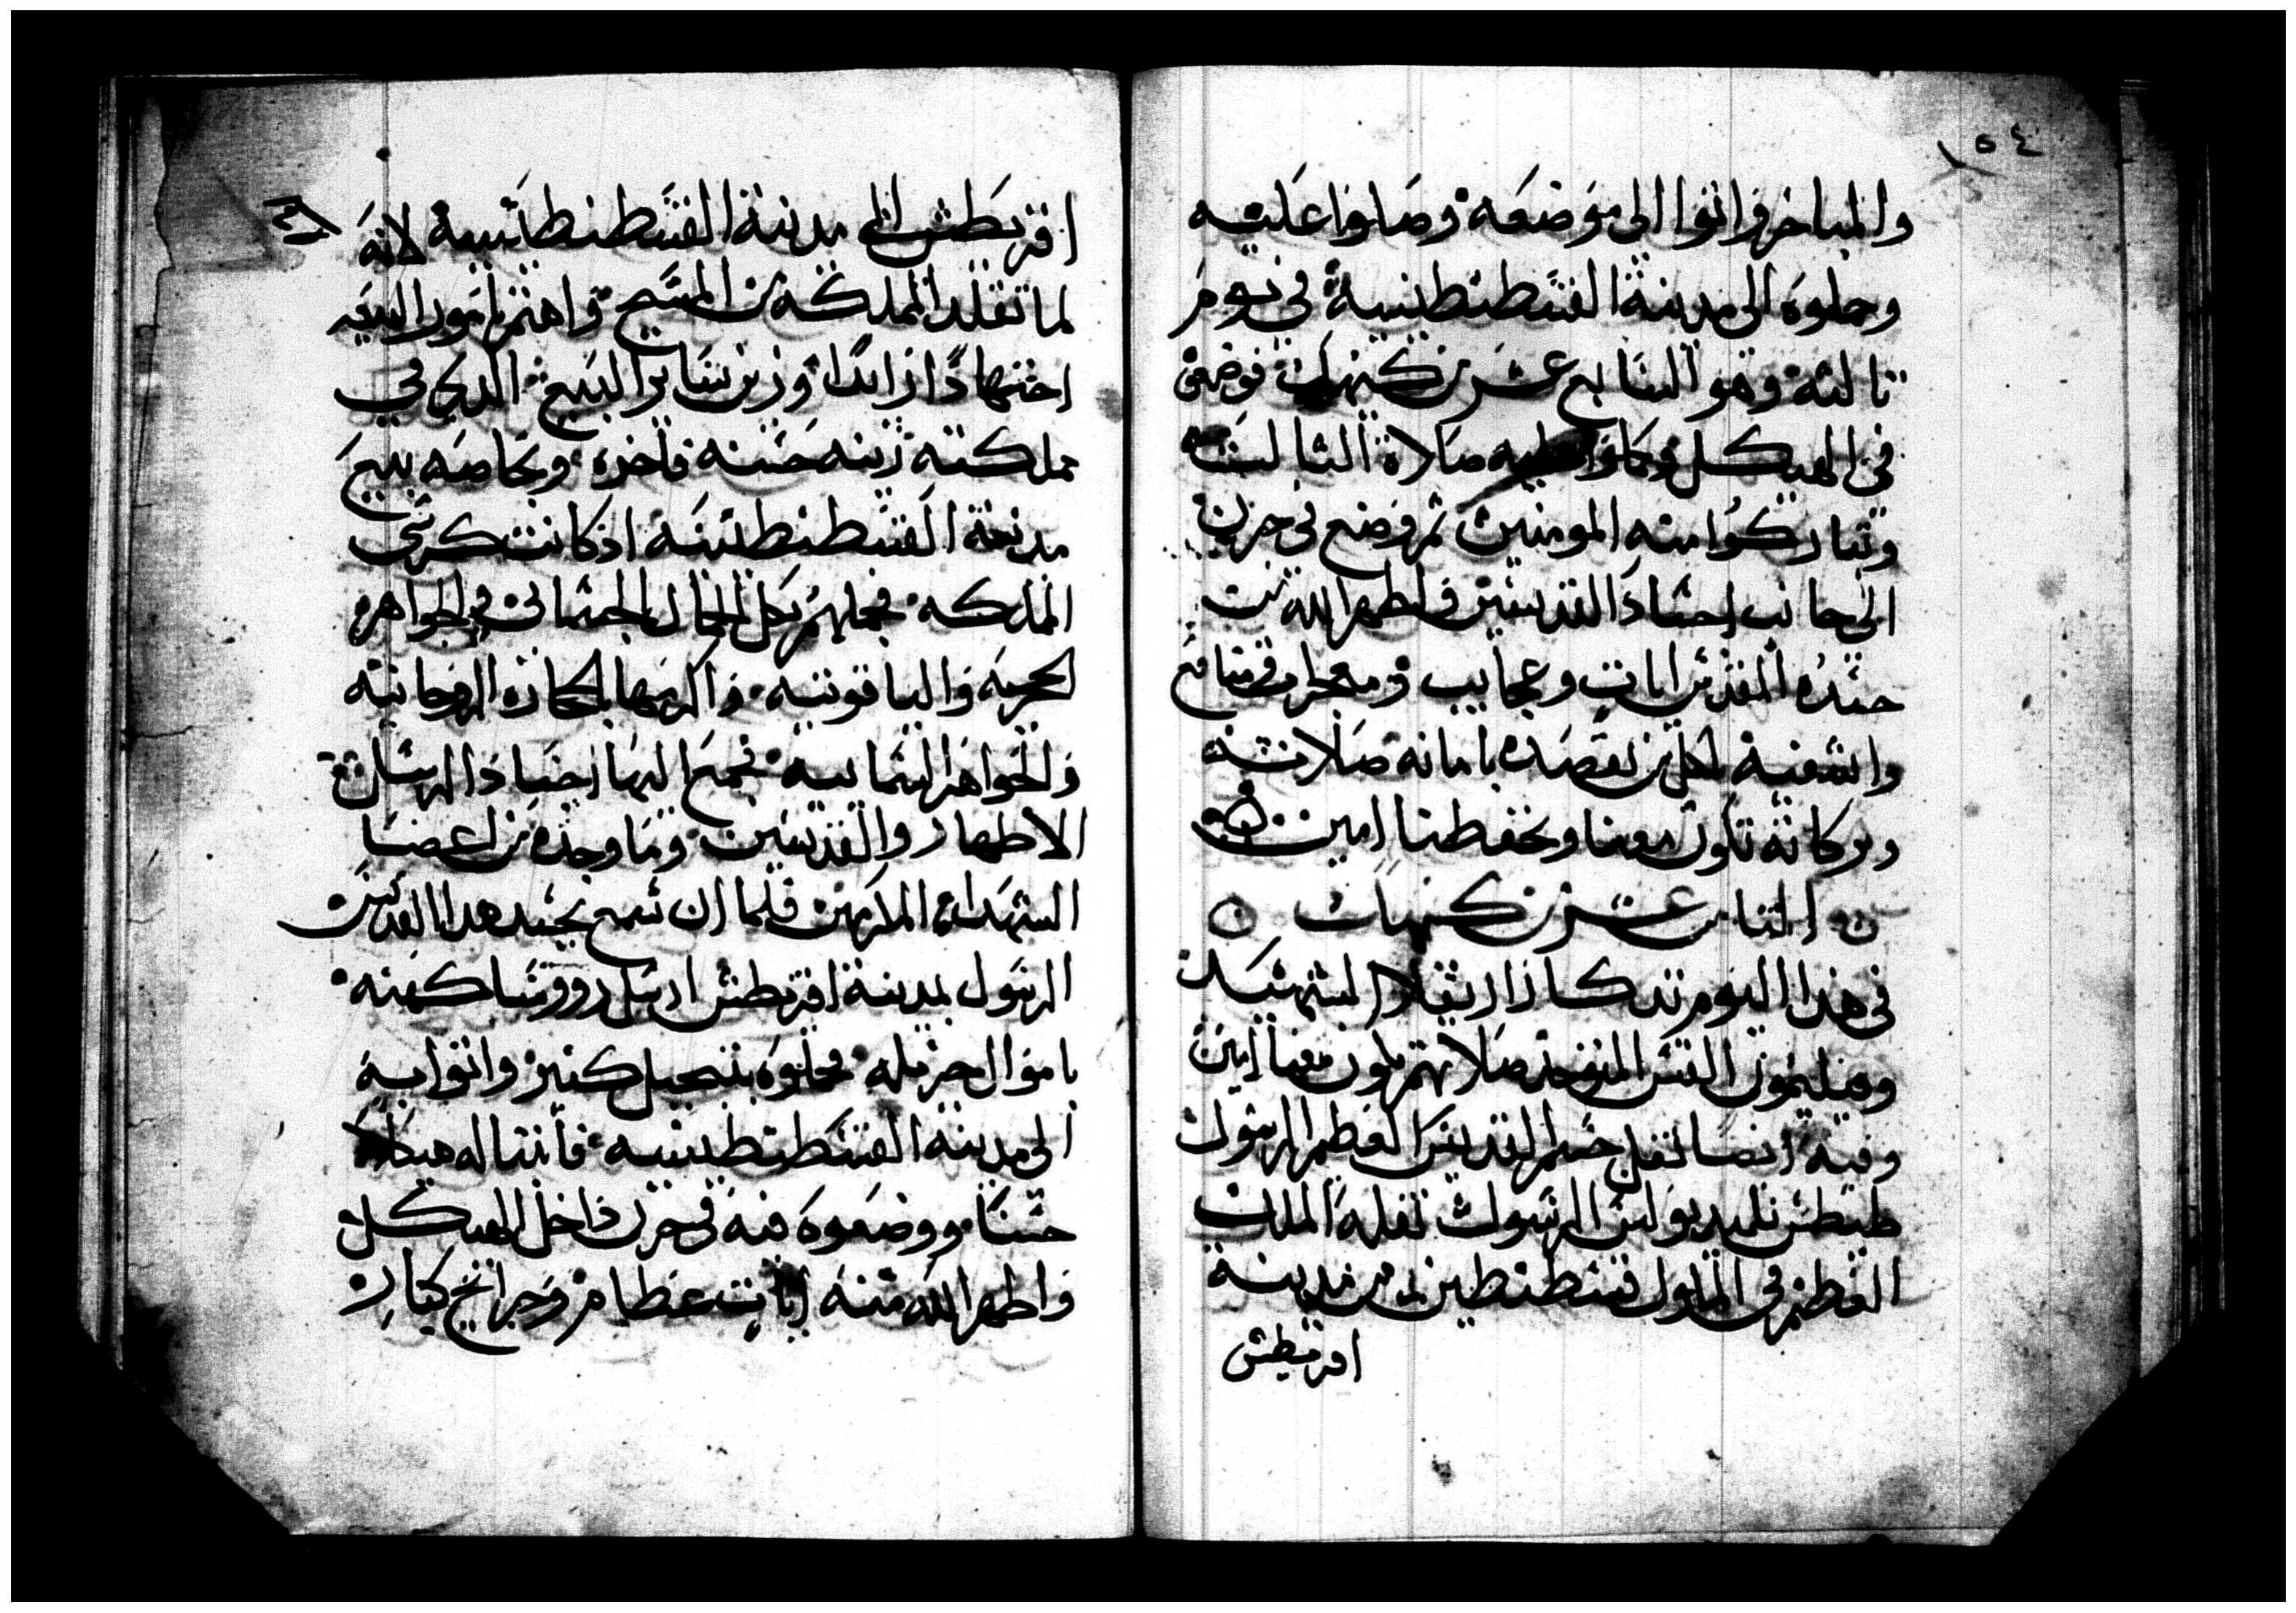 ١٥٤
والمباخر واتوا الى موضعه وصلوا عليه
وحملوه الى مدينة القسطنطينية في يوم
تالته وهو السابع عشر من كيهك فوضعوه
في الهيكل وكملوا عليه صلاة الثالثة
وتباركوا منه المومنين ثم وضع في جرن
الى جانب اجساد القديسين واظهر الله من
جسده المقدس ايات وعجايب ومعجزات ومنافع
واشفيه لكل من يقصده بامانه صلاته
وبركاته تكون معنا وتحفظنا امين
الثامن عشر من كيهك
في هذا اليوم تدكار ارتقلا المستشهد
وفيليمون القس المتوحد صلاتهم تكون معنا امين
وفيه ايضا نقل جسم القديس العظيم الرسول
طيطس تلميد بولس الرسول نقله الملك
العظيم في الملوك قسطنطين من مدينة
اقريطش
اقريطش الى مدينة القسطنطينية لانه
لما تقلد المملكه من المسيح واهتم بامور البيعه
اجتهادا زايدا وزين ساير البيع الدي في
مملكته زينه حسنه فاخره وبخاصه بيع
مدينة القسطنطينيه اد كانت كرسي
المملكه فجملهم بكل الجمال الجسماني في الجواهر
الحجريه والياقوتيه واكرمها بالحجاره الروحانيه
والجواهر السماييه فجمع اليها اجساد الرسل
الاطهار والقديسين وما وجده من اعضا
الشهدا المكرمين فلما ان سمع بجسد هدا القديس
الرسول بمدينة اقريطش ارسل رووسا كهنه
باموال جزيله فحملوه بتبجيل كتير واتوا به
الى مدينة القسطنطينيه فابتنا له هيكلا
حسنا ووضعوه فيه في جرن داخل الهيكل
واظهر الله منه ايات عظام وجرايح كبار